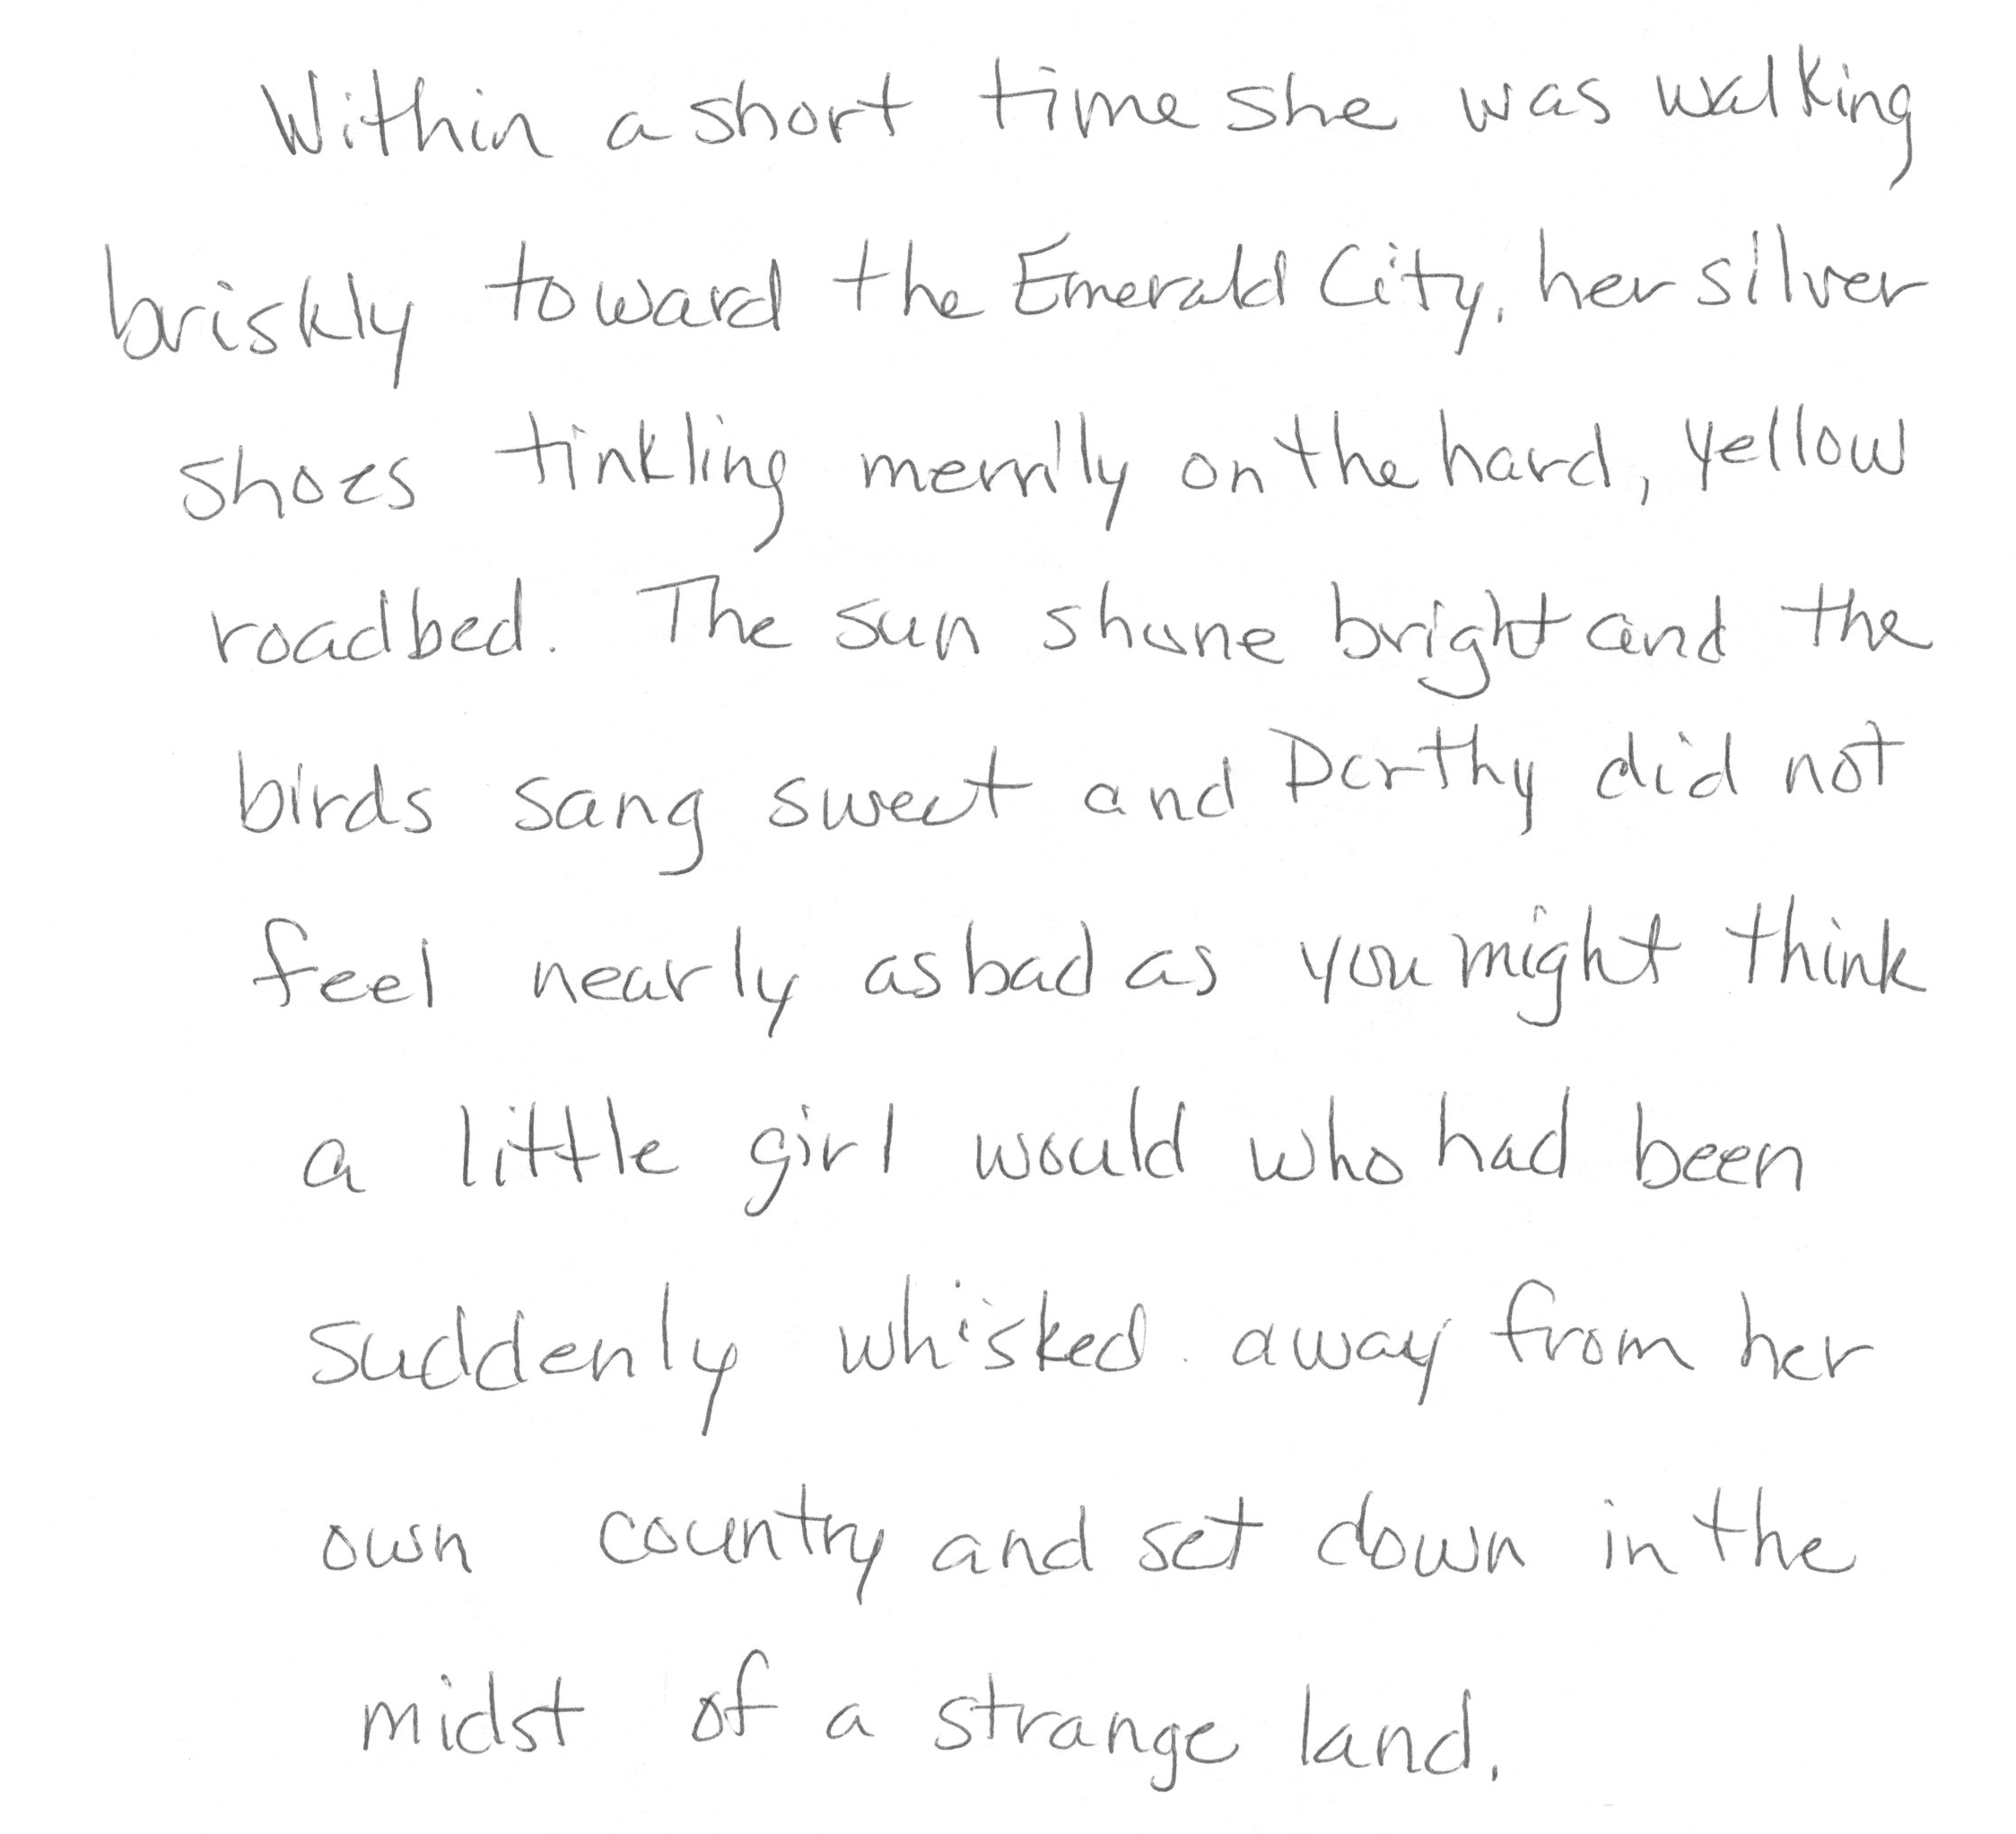 Within a short time she was walking
briskly toward the Emerald City, her silver
shoes tinkling merrily on the hard, yellow
roadbed. The sun shone bright and the
birds sang sweet and Dorthy did not
feel nearly as bad as you might think
a little girl would who had been
suddenly whisked away from her
own country and set down in the
midst of a strange land.